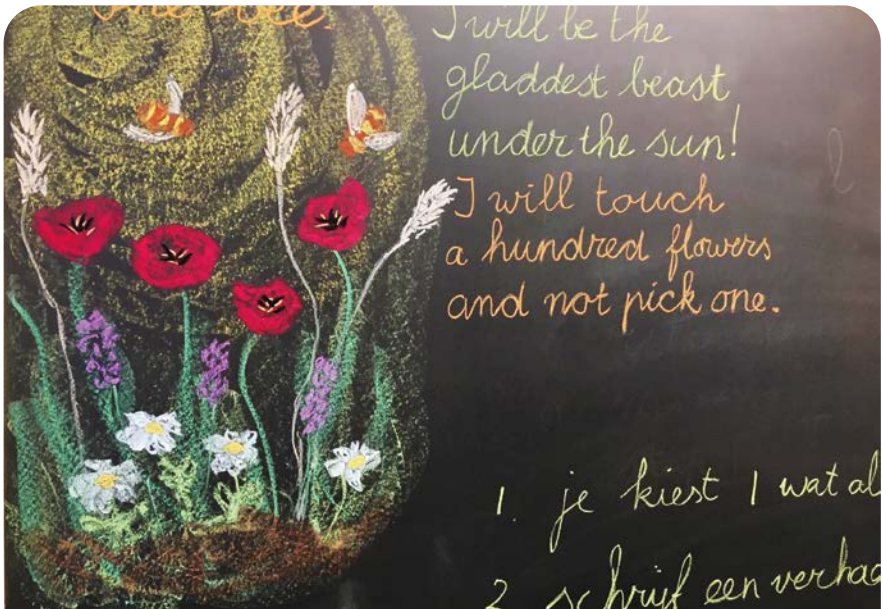 The bee
I will be the
gladdest beast
under the sun!
I will touch
a hundred flowers
and not pick one.
1. je kiest 1 wat al
2 schrijf een verhaa